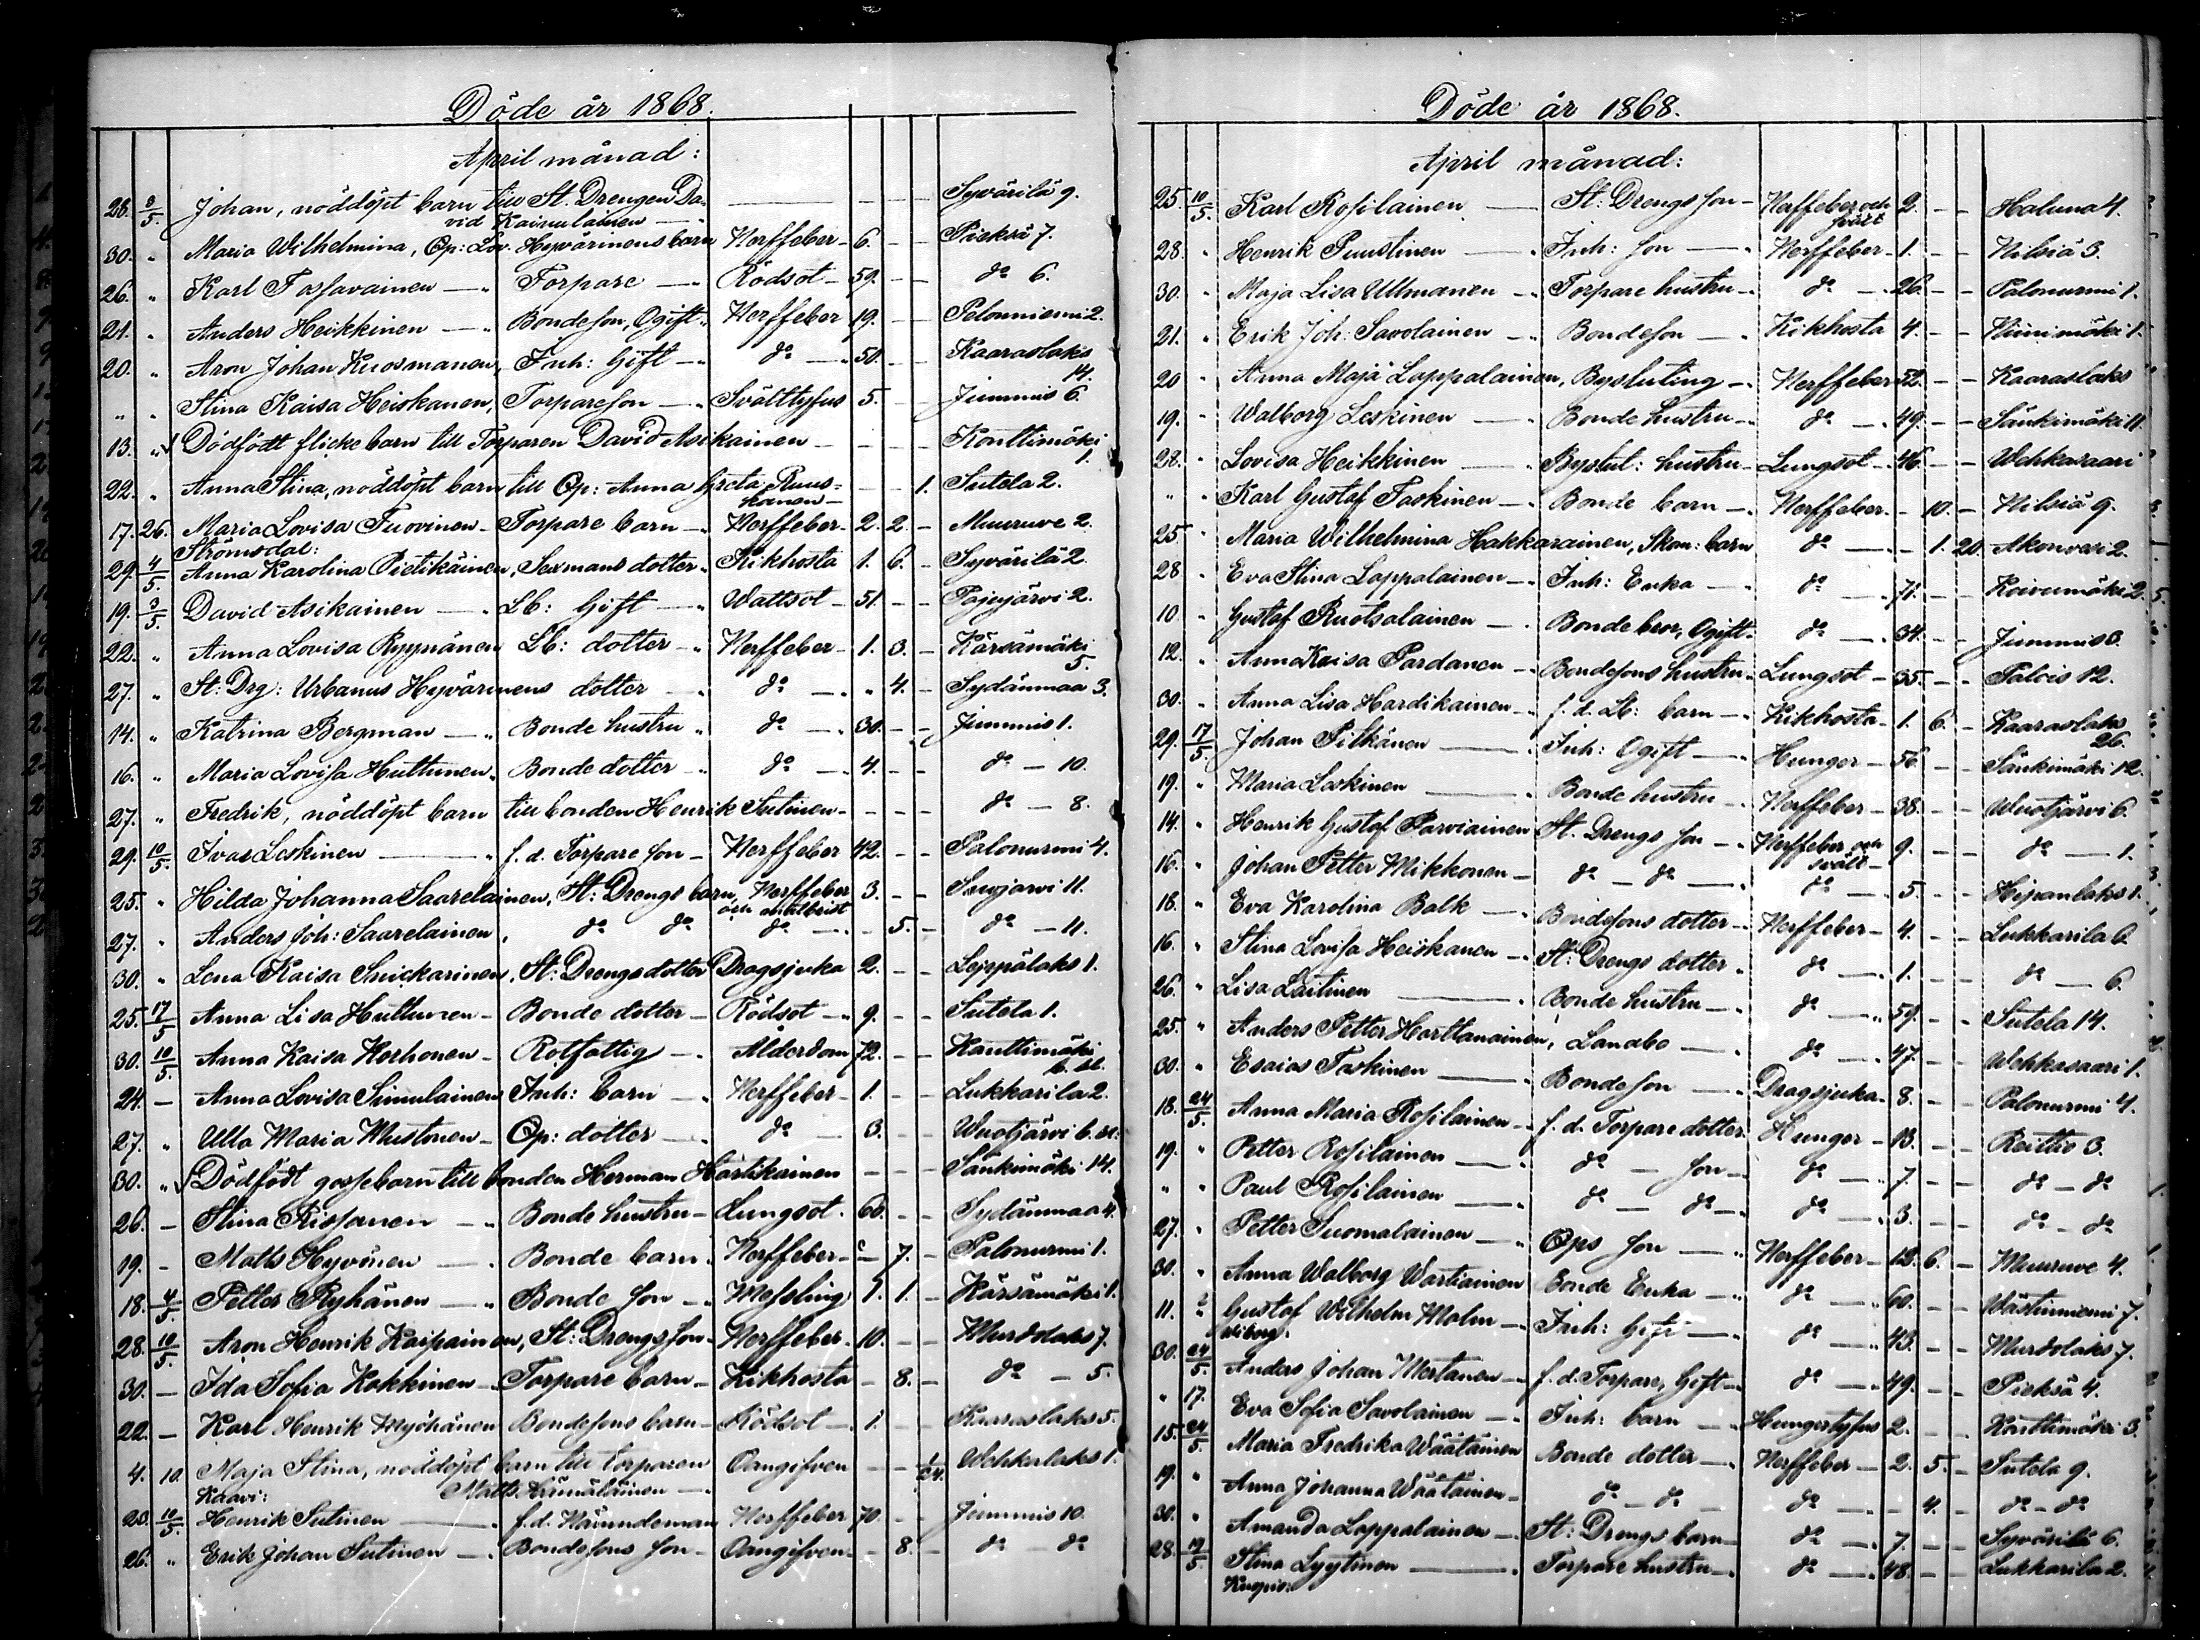 Döde år 1868.
April månad:
28. 3/5. Johan, nöddöpt barn till St. Drengen Da- — — — — Syvärilä 9.
vid Kainulainen —
30. " Maria Wilhelmina, Op: Lov. Hyvärinens barn Nerffeber 6. — — Pieksä 7.
26. " Karl Tossavainen — Torpare — Rödsot — 59. — — do 6.
21. " Anders Heikkinen — Bondeson, Ogift. Nerffeber 19. — — Pelonniemi 2.
20. " Aron Johan Kuosmanen, Inh: Gift — do — 50. — — Kaaraslaks
14.
" " Stina Kaisa Heiskanen, Torpareson — Svälttyfus 5. — — Jummis 6.
13. " Dödfödt flickebarn till Torparen David Asikainen — — — — Konttimäki
1.
22. " Anna Stina, nöddöpt barn till Op: Anna Greta Ruus= — — 1. Sutela 2.
kanen —
17. 26. Maria Lovisa Tuovinen — Torpare barn — Nerffeber — 2. 2. — Muuruve 2.
Strömsdal:
29. 4/5. Anna Karolina Pietikäinen, Sexmans dotter. Kikhosta 1. 6. — Syvärilä 2.
19. 3/5. David Asikainen — Lb: Gift — Wattsot — 51. — — Pajujärvi 2.
22. " Anna Lovisa Ryynänen Lb: dotter — Nerffeber — 1. 3. — Kärsämäki
5.
27. " St: Drg: Urbanus Hyvärinens dotter — do — " 4. — Sydänmaa 3.
14. " Katrina Bergman — Bonde hustru " do — 30. — — Jummis 1.
16. " Maria Lovisa Huttunen. Bonde dotter — do — 4. — — do — 10.
27. " Fredrik, nöddöpt barn till bonden Henrik Sutinen — — — — do — 8.
29. 10/5. Ivar Leskinen — f. d. Torpare son — Nerffeber 42. — — Palonurmi 4.
25. " Hilda Johanna Saarelainen, St: Drengs barn, Nerffeber 3. — — Suojärvi 11.
och matbrist
27. " Anders Joh: Saarelainen, do do do — — 5. — do — 11.
30. " Lena Kaisa Snickarinen, St: Drengs dotter Dragsjuka 2. — — Leppälaks 1.
25. 17/5 Anna Lisa Huttunen — Bonde dotter — Rödsot — 9. — — Sutela 1.
30. 10/5. Anna Kaisa Korhonen — Rotfattig — Ålderdom 72. — — Konttimäki
24. — Anna Lovisa Simulainen Inh: barn — Nerffeber — 1. — — Lukkarila 2.
27. " Ulla Maria Mustonen — Op: dotter — do — 3. — — Wuotjärvi
30. " Dödfödt gossebarn till bonden Herman Hartikainen — — — Sänkimäki 14.
26. — Stina Rissanen — Bonde hustru — Lungsot. 66. — — Sydänmaa 4.
19. — Matts Hyvönen — Bonde barn. Nerffeber — — 7. — Palonurmi 1.
18. 4/5. Petter Ryhänen — Bonde son — Messling 7. 1. — Kärsämäki 1.
28. 10/5. Aron Henrik Kaipainen, St: Drengs son — Nerffeber — 10. — — Murtolaks 7.
30. — Ida Sofia Kokkinen — Torpare barn — Kikhosta — 8. — do — 5.
22. — Karl Henrik Myöhänen Bondesons barn — Rödsot — 1. — — Kaaraslaks 5.
4. 10. Maja Stina, nöddöpt barn till torparen Oangifven — — 1/24. Wehkalaks 1.
Kaavi: Matts Hämäläinen —
20. 10/5. Henrik Sutinen — f.d. Nämndeman Nerffeber 70. — — Jummis 10.
26. " Erik Johan Sutinen — Bondesons son — Oangifven — — 8. — do — do
Döde år 1868.
April månad:
25 10/5. Karl Rossilainen — St: Drengs son — Nerffeber och 2. — — Haluna 4.
svält
28. " Henrik Puustinen — Inh: son — Nerffeber — 1. — — Nilsiä 3.
30. " Maja Lisa Ullmanen — Torpare hustru — do — 26. — — Palonurmi 1.
21. " Erik Joh: Savolainen — Bondeson — Kikhosta 4. — — Niinimäki 1.
20 " Anna Maja Lappalainen, Bysluting — Nerffeber 52. — — Kaaraslaks
19. " Walborg Leskinen — Bonde hustru — do — 49. — — Sänkimäki 11
28. " Lovisa Heikkinen — Byslut: hustru — Lungsot — 46 — — Wehkasaari
" " Karl Gustaf Taskinen — Bonde barn — Nerffeber. — 10. — Nilsiä 9.
25 " Maria Wilhelmina Hakkarainen, Skom: barn do — — 1. 20. Akonvesi 2.
28 " Eva Stina Lappalainen — Inh: Enka — do — 71. — — Koivumäki 2.
10. " Gustaf Ruotsalainen — Bonde bror, Ogift. do — 34. — — Jummis 8.
12. " Anna Kaisa Pardanen — Bondesons hustru — Lungsot — 35. — — Palois 12.
30. " Anna Lisa Hardikainen — f. d. Lb: barn — Kikhosta — 1. 6. — Kaaraslaks
26.
29. 17/5. Johan Pitkänen — Inh: Ogift — Hunger — 56. — — Sänkimäki 12.
19. " Maria Leskinen — Bonde hustru — Nerffeber — 38. — — Wuotjärvi 6.
14. " Henrik Gustaf Parviainen St. Drengs son — Nerffeber och 9. — — do — 1.
svält —
16. " Johan Petter Mikkonen — do — do — do — 5. — — Hipanlaks 1.
18. " Eva Karolina Balk — Bondesons dotter — Nerffeber — 4. — — Lukkarila 6.
16. " Stina Lovisa Heiskanen — St: Drengs dotter. do — 1. — — do — 6.
26. " Lisa Laitinen — Bonde hustru — do — 59. — — Sutela 14.
25. " Anders Petter Horttanainen, Landbo — do — 47. — — Wehkasaari 1.
30. " Esaias Taskinen — Bondeson — Dragsjuka — 8. — — Palonurmi 4.
18. 24/5. Anna Maria Rossilainen — f. d. Torpare dotter. Hunger — 13. — — Reittio 3.
19. " Petter Rossilainen — do — son — do — 7. — — do — do
" " Paul Rossilainen — do — do — do — 3. — — do — do
27. " Petter Suomalainen — Ops son — Nerffeber — 12. 6. — Muuruve 4.
30. " Anna Walborg Wartiainen Bonde Enka — do — 60. — — Wästinniemi 7.
11. Gustaf Wilhelm Malm — Inh: Gift — do — 43. — — Murtolaks 7.
Wiborg:
30. 24/5. Anders Johan Mertanen — f. d. Torpare, Gift — do — 49. — — Pieksä 4.
" 17. Eva Sofia Savolainen — Inh: barn — Hungertyfus 2. — — Konttimäki 3.
15. 24/5. Maria Fredrika Wäätäinen Bonde dotter — Nerffeber — 2. 5. — Sutela 9.
19. " Anna Johanna Wäätäinen — do — do — do — — 4. — do — do
30. " Amanda Lappalainen — St: Drengs barn — do — 7. — — Syvärilä 6.
28. 19/5. Stina Lyytinen — Torpare hustru — do — 48. — — Lukkarila 2.
Kuopio: